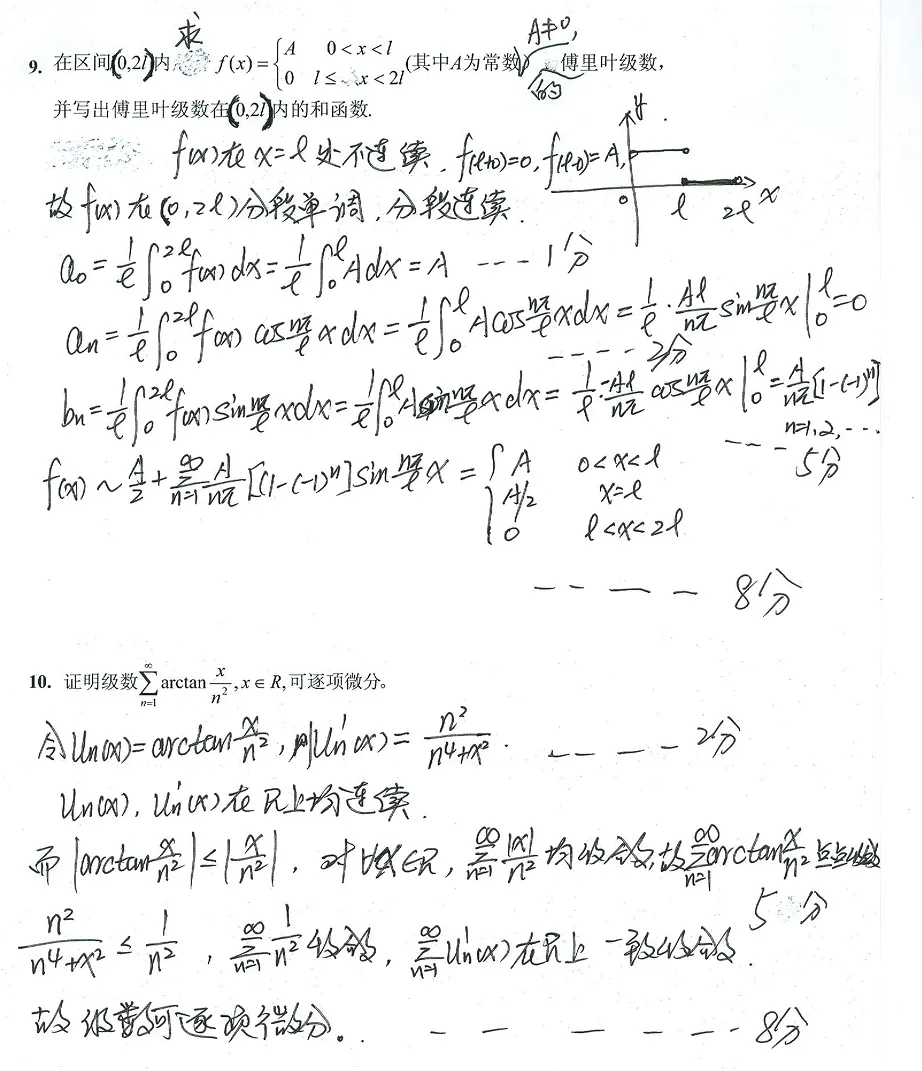 求 A≠0,
9. 在区间(0,2l)内 f(x)={A 0<x<l (其中A为常数) 的 傅里叶级数,
0 l≤ x<2l
并写出傅里叶级数在(0,2l)内的和函数.
f(x)在x=l处不连续, f(l+0)=0, f(l-0)=A,
y
0 l 2l x
故f(x)在(0,2l)分段单调,分段连续.
a₀=1/l∫₀^{2l} f(x)dx=1/l∫₀^l Adx=A ---- 1分
aₙ=1/l∫₀^{2l} f(x)cos nπ/l xdx=1/l∫₀^l Acos nπ/l xdx=1/l·Al/nπ sin nπ/l x|₀^l=0
---- 3分
bₙ=1/l∫₀^{2l} f(x)sin nπ/l xdx=1/l∫₀^l Asin nπ/l xdx=1/l·-Al/nπ cos nπ/l x|₀^l=A/nπ[1-(-1)ⁿ]
n=1,2,···
--- 5分
f(x)~A/2+∑_{n=1}^∞ A/nπ[(1-(-1)ⁿ]sin nπ/l x={A 0<x<l
A/2 x=l
0 l<x<2l
---- 8分
10. 证明级数∑_{n=1}^∞ arctan x/n²,x∈R,可逐项微分。
令Uₙ(x)=arctan x/n², 则Uₙ'(x)=n²/(n⁴+x²). ---- 2分
Uₙ(x), Uₙ'(x)在R上均连续.
而|arctan x/n²|≤|x/n²|, 对∀x∈R, ∑_{n=1}^∞ |x|/n² 均收敛,故∑_{n=1}^∞ arctan x/n² 点点收敛
5分
n²/(n⁴+x²)≤1/n², ∑_{n=1}^∞ 1/n² 收敛, ∑_{n=1}^∞ Uₙ'(x)在R上一致收敛.
故级数可逐项微分。 ------ 8分